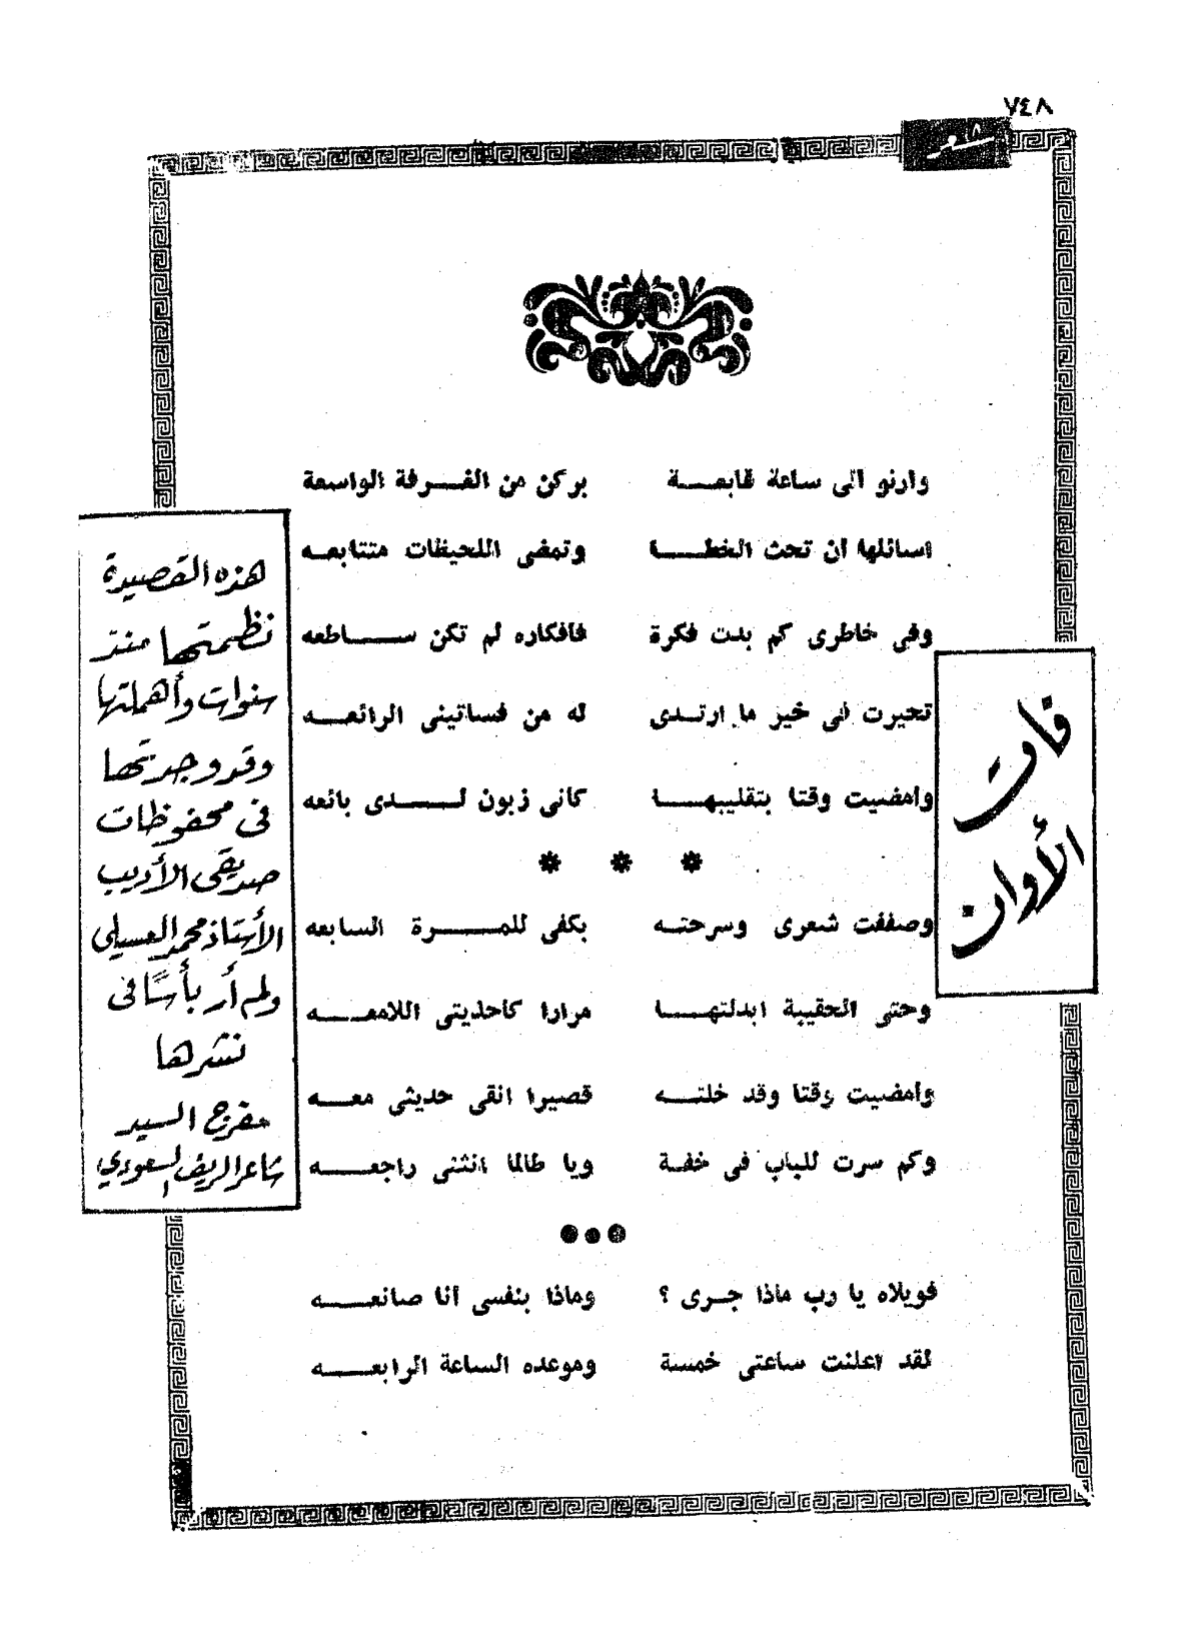 ٧٤٨
شعر
فات
الأوان
وارنو الى ساعة قابعـــة بركن من الغـــرفة الواسعة
اسائلها ان تحث الخطـــا وتمضى اللحيظات متتابعـه
وفى خاطرى كم بدت فكرة فافكاره لم تكن ســـاطعه
تحيرت فى خير ما ارتـدى له من فساتينى الرائعـــه
وامضيت وقتا بتقليبهـــا كانى زبون لـــدى بائعه
* * *
وصففت شعرى وسرحتـه بكفى للمـــرة السابعه
وحتى الحقيبة ابدلتهـــا مرارا كاحذيتى اللامعـــه
وامضيت وقتا وقد خلتـــه قصيرا انقى حديثى معـــه
وكم سرت للباب فى خفـة ويا طالما انثنى راجعـــه
●●●
فويلاه يا رب ماذا جـرى ؟ وماذا بنفسى انا صانعـــه
لقد اعلنت ساعتى خمسة وموعده الساعة الرابعـــه
هذه القصيدة
نظمتها منذ
سنوات وأهملتها
وقد وجدتها
في محفوظات
صديقي الأديب
الأستاذ محمد العسيلي
ولم أر بأسًا في
نشرها
مفرج السيد
شاعر الريف السعودي